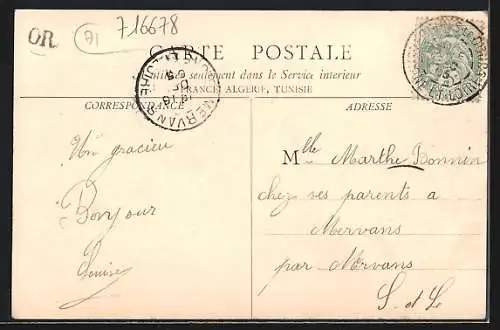 OR
91
716678
CARTE POSTALE
utilisée seulement dans le Service intérieur
(FRANCE) ALGERIE, TUNISIE
CORRESPONDANCE
ADRESSE
MERVANS
Un gracieu
Bonjour
Louise
Mlle Marthe Bonnin
chez ses parents a
Mervans
par Mervans
S. et L.